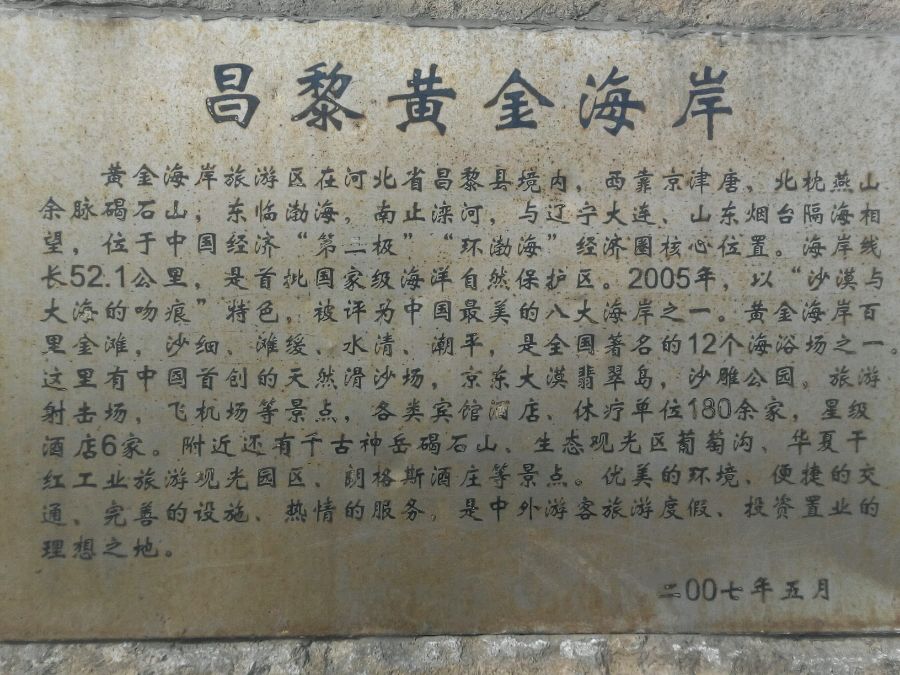 昌黎黄金海岸
黄金海岸旅游区在河北省昌黎县境内，西靠京津唐，北枕燕山
余脉碣石山；东临渤海，南止滦河，与辽宁大连、山东烟台隔海相
望，位于中国经济“第三极”“环渤海”经济圈核心位置。海岸线
长52.1公里，是首批国家级海洋自然保护区。2005年，以“沙漠与
大海的吻痕”特色，被评为中国最美的八大海岸之一。黄金海岸百
里金滩，沙细、滩缓、水清、潮平，是全国著名的12个海浴场之一。
这里有中国首创的天然滑沙场，京东大漠翡翠岛，沙雕公园，旅游
射击场，飞机场等景点，各类宾馆酒店、休疗单位180余家，星级
酒店6家。附近还有千古神岳碣石山、生态观光区葡萄沟、华夏干
红工业旅游观光园区、朗格斯酒庄等景点。优美的环境、便捷的交
通、完善的设施、热情的服务，是中外游客旅游度假、投资置业的
理想之地。
二00七年五月